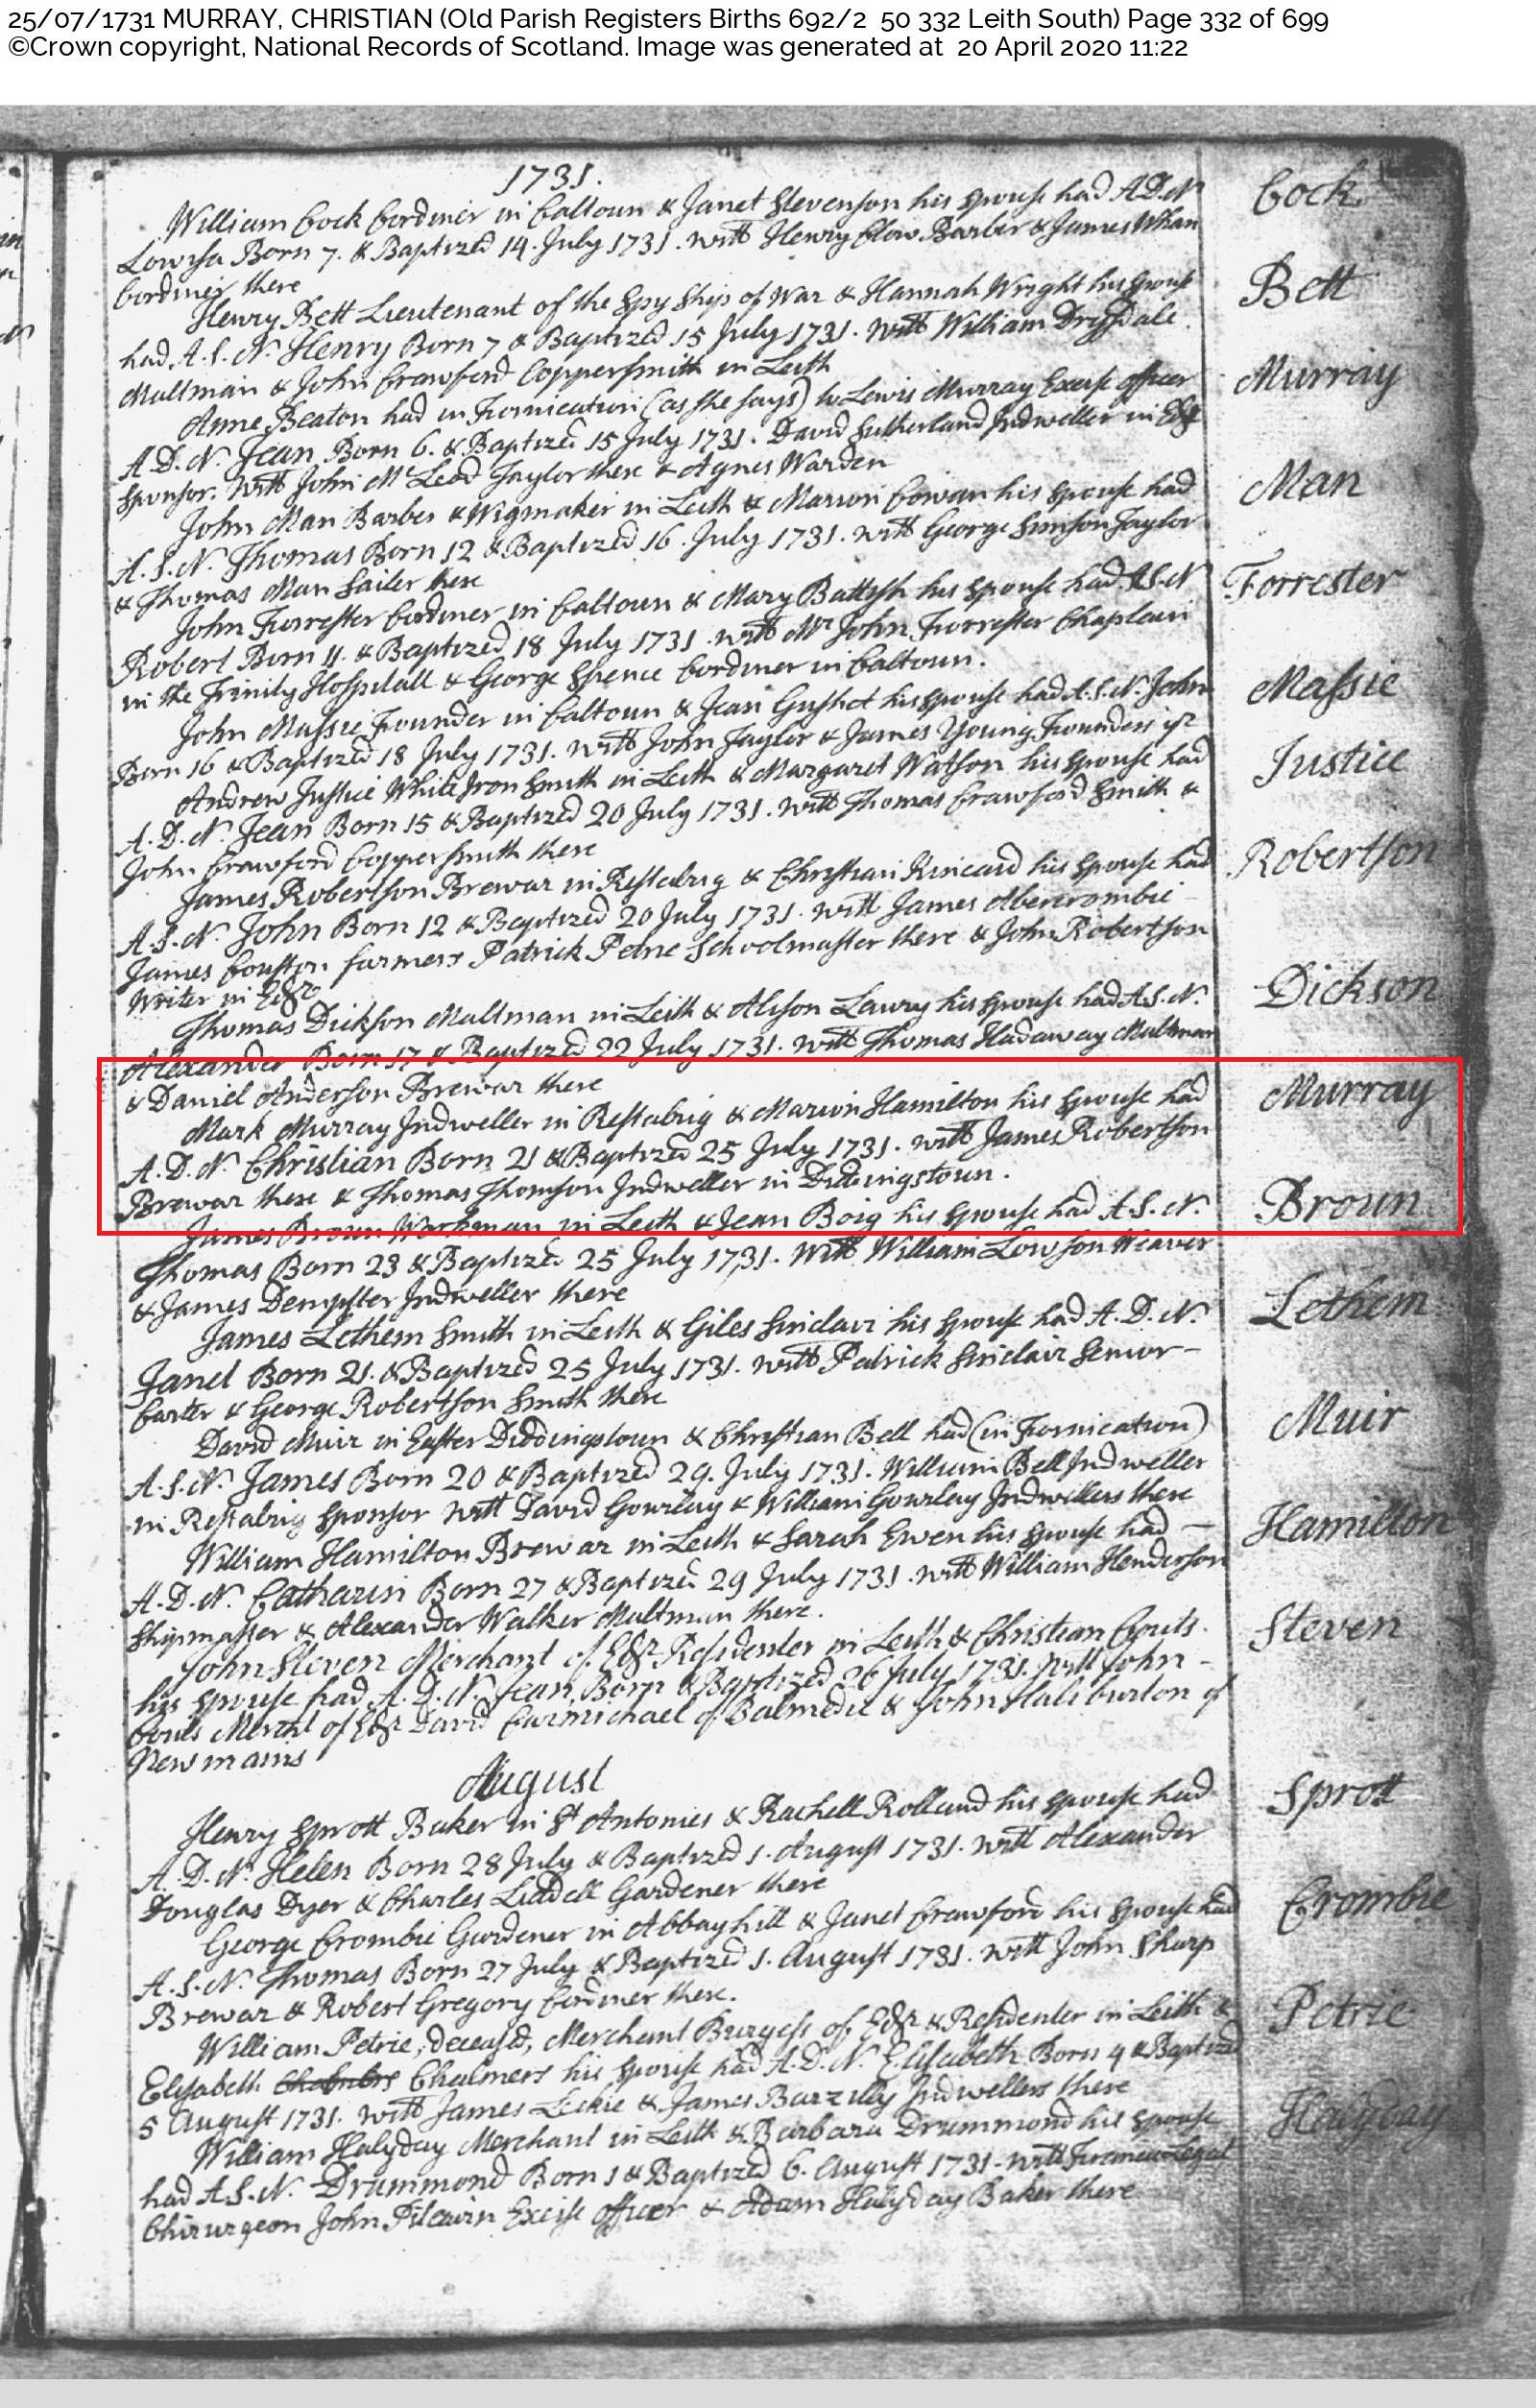 25/07/1731 MURRAY, CHRISTIAN (Old Parish Registers Births 692/2 50 332 Leith South) Page 332 of 699
©Crown copyright, National Records of Scotland. Image was generated at 20 April 2020 11:22
1731.
William Cock Cordiner in Caltoun & Janet Stevenson his spouse had A.D.N. Cock
Lowisa Born 7. & Baptized 14. July 1731. witt Henry Blow Barber & James Whan
Cordiner there
Henry Bett Lieutenant of the Spy Ship of War & Hannah Wright his spouse Bett
had A.S.N. Henry Born 7 & Baptized 15 July 1731. witt William Drysdale
Maltman & John Crawford Coppersmith in Leith
Anne Beaton had in Fornication (as she says) to Lewis Murray Excise officer Murray
A.D.N. Jean Born 6. & Baptized 15 July 1731. David Sutherland Indweller in Edr
sponsor. witt John McLeod Taylor there & Agnes Warden
John Man Barber & Wigmaker in Leith & Marion Cowan his spouse had Man
A.S.N. Thomas Born 12 & Baptized 16. July 1731. witt George Simson Taylor
& Thomas Man Sailer there
John Forrester Cordiner in Caltoun & Mary Battysh his spouse had A.S.N. Forrester
Robert Born 11. & Baptized 18 July 1731. witt Mr John Forrester Chaplain
in the Trinity Hospitall & George Spence Cordiner in Caltoun.
John Massie Founder in Caltoun & Jean Gushet his spouse had A.S.N. John Massie
Born 16 & Baptized 18 July 1731. witt John Taylor & James Young Founders yr
Andrew Justice White Iron Smith in Leith & Margaret Watson his spouse had Justice
A.D.N. Jean Born 15 & Baptized 20 July 1731. witt Thomas Crawford Smith &
John Crawford Coppersmith there
James Robertson Brewar in Restalrig & Christian Kincaid his spouse had Robertson
A.S.N. John Born 12 & Baptized 20 July 1731. witt James Abercrombie
James Couston farmers Patrick Petrie Schoolmaster there & John Robertson
Writer in Edr
Thomas Dickson Maltman in Leith & Alison Lawry his spouse had A.S.N. Dickson
Alexander Born 17 & Baptized 22 July 1731. witt Thomas Hadaway Maltman
& Daniel Anderson Brewar there
Mark Murray Indweller in Restabrig & Marion Hamilton his spouse had Murray
A.D.N. Christian Born 21 & Baptized 25 July 1731. witt James Robertson
Brewar there & Thomas Thomson Indweller in Didingstoun.
James Broun Workman in Leith & Jean Boig his spouse had A.S.N. Broun
Thomas Born 23 & Baptized 25 July 1731. witt William Lowson Weaver
& James Dempster Indweller there
James Lethem Smith in Leith & Giles Sinclair his spouse had A.D.N. Lethem
Janet Born 21. & Baptized 25 July 1731. witt Patrick Sinclair Senior -
Carter & George Robertson Smith there
David Muir in Easter Duddingstoun & Christian Bell had (in Fornication) Muir
A.S.N. James Born 20 & Baptized 29. July 1731. William Bell Indweller
in Restabrig sponsor witt David Gowrlay & William Gowrlay Indwellers there
William Hamilton Brewar in Leith & Sarah Ewen his spouse had - Hamilton
A.D.N. Catharin Born 27 & Baptized 29 July 1731. witt William Henderson
Shipmaster & Alexander Walker Maltman there.
John Steven Merchant of Edr Residenter in Leith & Christian Couts Steven
his spouse had A.D.N. Jean, Born & Baptized 26 July 1731. witt John -
Couts Mercht of Edr David Carmichael of Balmedie & John Haliburton of
Newmains
August
Henry Sprott Baker in St Antonies & Rachell Rolland his spouse had Sprott
A.D.N. Helen Born 28 July & Baptized 1. August 1731. witt Alexander
Douglas Dyer & Charles Liddell Gardener there
George Crombie Gardener in Abbayhill & Janet Crawford his spouse had Crombie
A.S.N. Thomas Born 27 July & Baptized 1. August 1731. witt John Sharp
Brewar & Robert Gregory Cordiner there.
William Petrie, deceas'd, Merchant Burgess of Edr & Residenter in Leith & Petrie
Elisabeth Chalmers his spouse had A.D.N. Elisabeth Born 4 & Baptized
5 August 1731. witt James Leckie & James Barzilly Indwellers there
William Halyday Merchant in Leith & Barbara Drummond his spouse Halyday
had A.S.N. Drummond Born 1 & Baptized 6. August 1731. witt
Chirurgeon John Pitcairn Excise officer & Adam Halyday Baker there